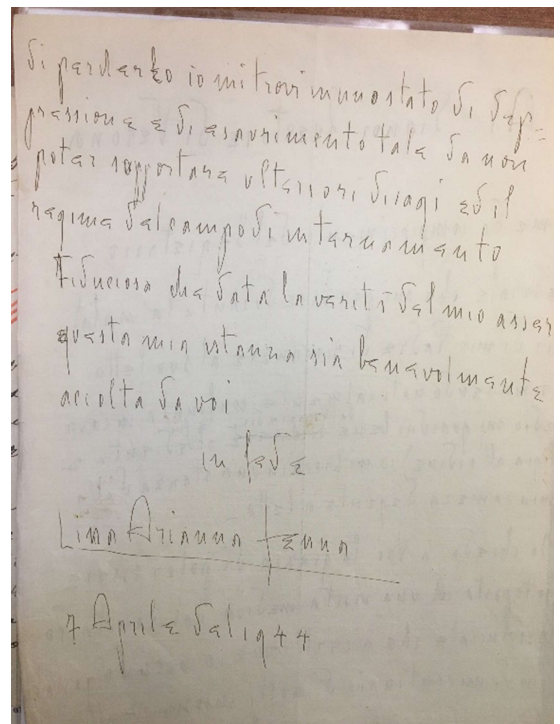 di perderlo io mi trovi in uno stato di dep=
pressione e di esaurimento tale da non
poter sopportare ulteriori disagi ed il
regime del campo di internamento
Fiduciosa che data la verità del mio asser
questa mia istanza sia benevolmente
accolta da voi
in fede
Lina Arianna Jenna
7 Aprile del 1944